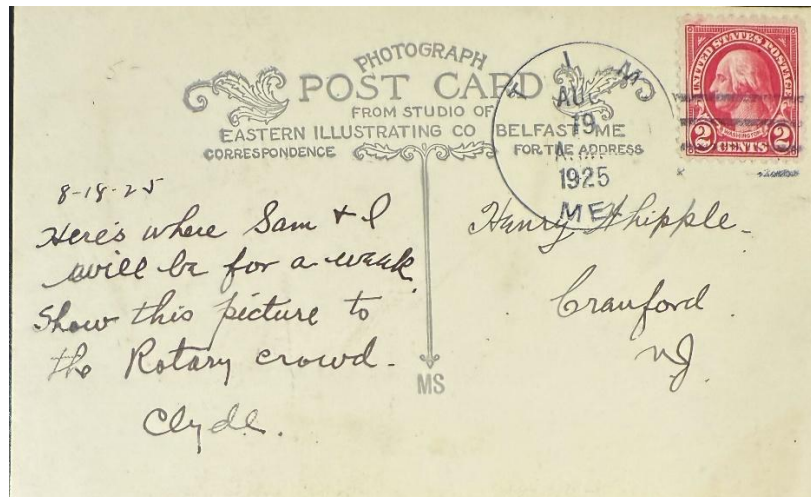 PHOTOGRAPH
POST CARD
FROM STUDIO OF
EASTERN ILLUSTRATING CO BELFAST ME
CORRESPONDENCE
FOR THE ADDRESS
AUG
19
A.M.
1925
ME
UNITED STATES POSTAGE
WASHINGTON
2 CENTS 2
8-18-25
Here's where Sam & I
will be for a week
Show this picture to
the Rotary crowd -
Clyde.
Henry Whipple -
Cranford
NJ.
MS